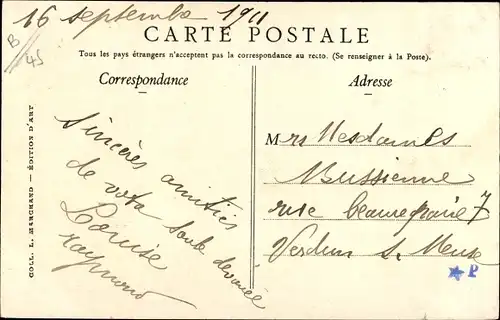 16 septembre 1911
B
45
CARTE POSTALE
Tous les pays étrangers n'acceptent pas la correspondance au recto. (Se renseigner à la Poste).
Correspondance
Adresse
Sincères amitiés
de votre toute dévouée
Louise
Raymond
Mrs Mesdames
Mussienne
rue beaurepaire 7
Verdun s. Meuse
P
COLL. L. MARCHAND — ÉDITION D'ART